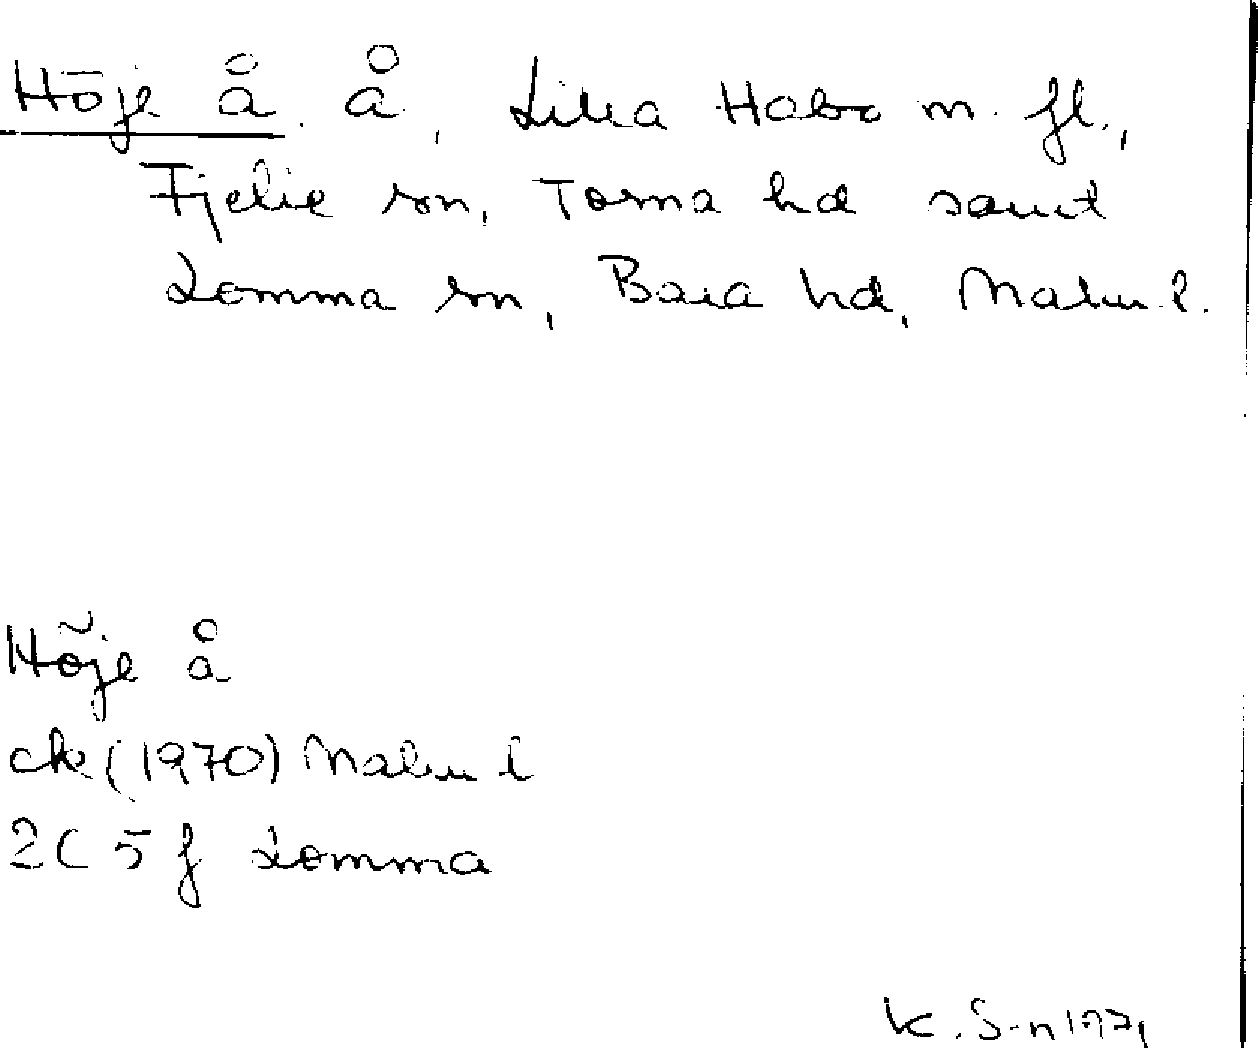 Höje å. å, Lilla Habo m. fl.,
Fjelie sn, Torna hd samt
Lomma sn, Bara hd, Malm. l.
Höje å
ek (1970) Malm l
2C 5 f Lomma
K. S-n 1971